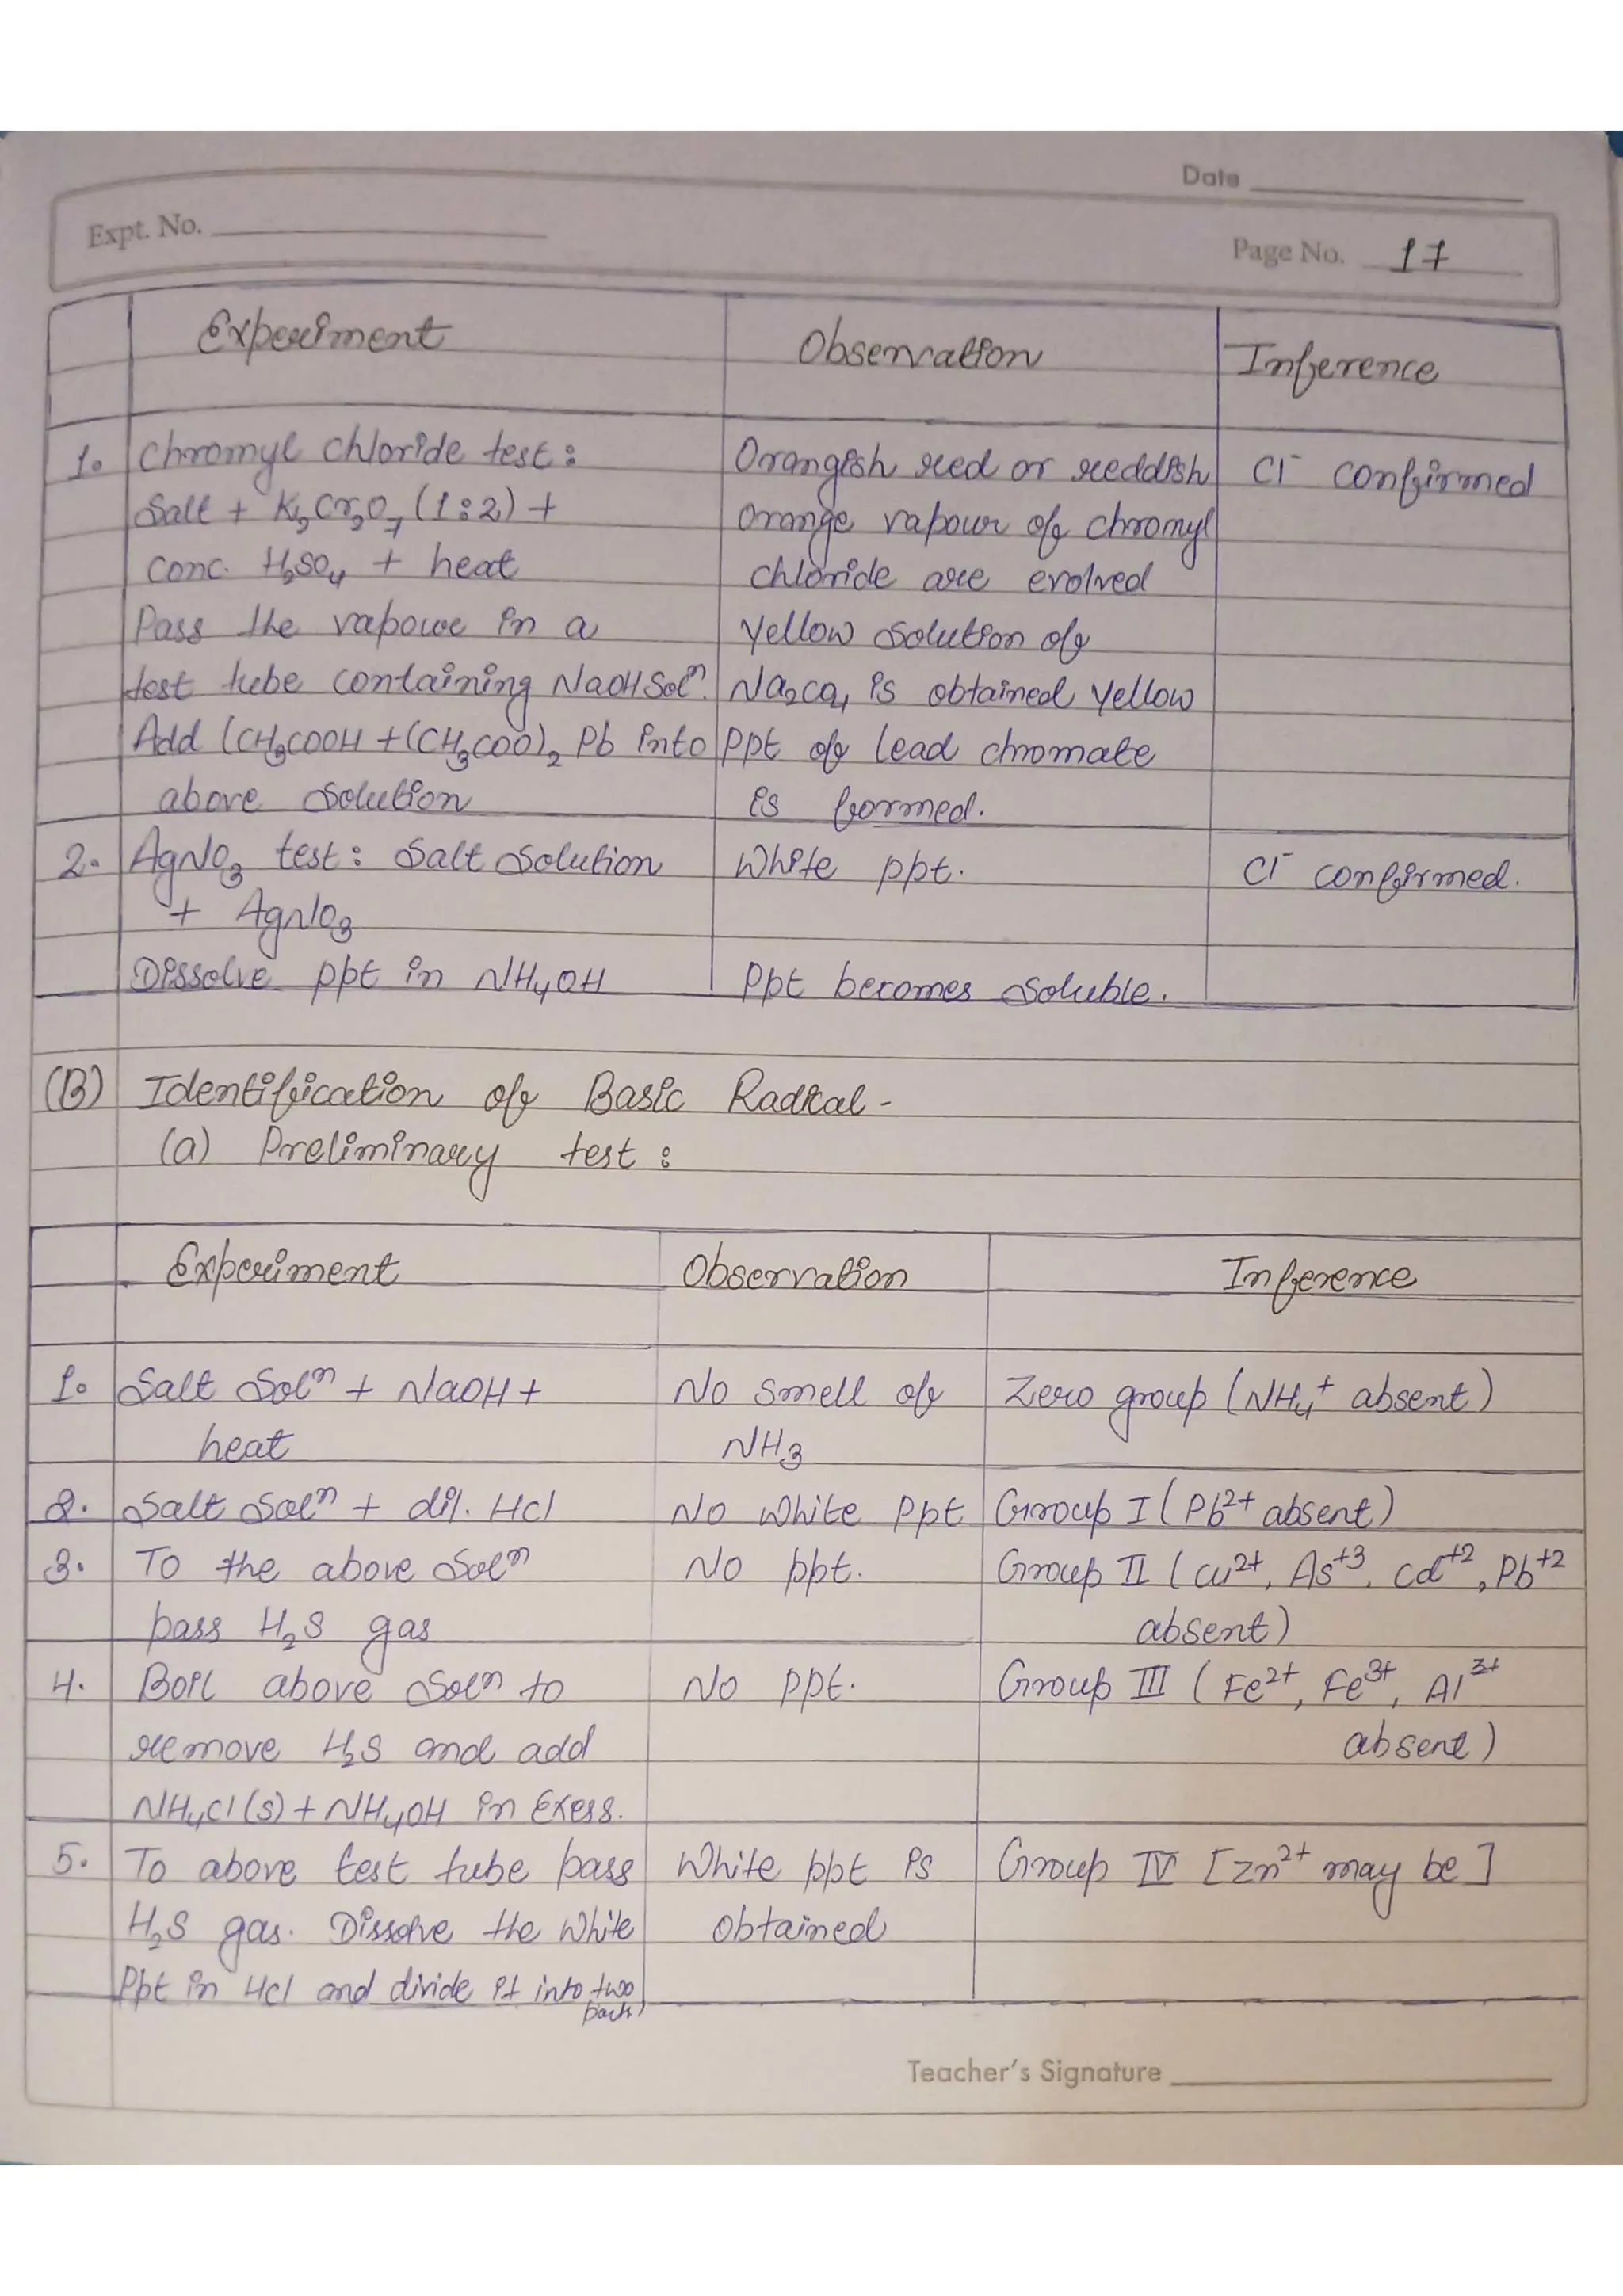 Date
Expt. No.
Page No. 17
Experiment Observation Inference
1. Chromyl chloride test: Orangish red or reddish Cl⁻ confirmed
Salt + K₂Cr₂O₇ (1:2) + orange vapour of chromyl
conc. H₂SO₄ + heat chloride are evolved
Pass the vapour in a Yellow solution of
test tube containing NaOH Solⁿ. Na₂CO₄ is obtained Yellow
Add (CH₃COOH + (CH₃COO)₂ Pb into ppt of lead chromate
above solution is formed.
2. AgNO₃ test: Salt Solution White ppt. Cl⁻ confirmed.
+ AgNO₃
Dissolve ppt in NH₄OH Ppt becomes soluble.
(B) Identification of Basic Radical -
(a) Preliminary test:
Experiment Observation Inference
1. Salt Solⁿ + NaOH + No smell of Zero group (NH₄⁺ absent)
heat NH₃
2. Salt Solⁿ + dil. HCl No white ppt Group I (Pb²⁺ absent)
3. To the above Solⁿ No ppt. Group II (Cu²⁺, As⁺³, Cd⁺², Pb⁺²
pass H₂S gas absent)
4. Boil above Solⁿ to No ppt. Group III (Fe²⁺, Fe³⁺, Al³⁺
remove H₂S and add absent)
NH₄Cl(s) + NH₄OH in Exess.
5. To above test tube pass White ppt is Group IV [Zn²⁺ may be]
H₂S gas. Dissolve the White obtained
Ppt in HCl and divide it into two
part
Teacher's Signature